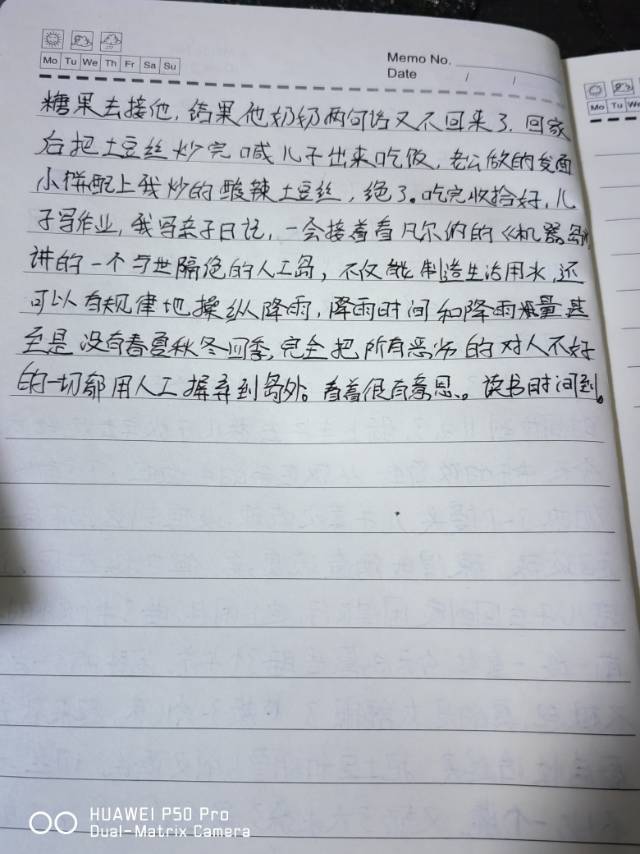 Mo Tu We Th Fr Sa Su
Memo No.
Date / /
糖果去接他,结果他奶奶两句话又不回来了。回家
后把土豆丝炒完喊儿子出来吃饭,老公做的发面
小饼配上我炒的酸辣土豆丝,绝了。吃完收拾好,儿
子写作业,我写亲子日记,一会接着看凡尔纳的《机器岛》
讲的一个与世隔绝的人工岛,不仅能制造生活用水,还
可以有规律地操纵降雨,降雨时间和降雨量,甚
至是没有春夏秋冬四季,完全把所有恶劣的对人不好
的一切都用人工摒弃到岛外。看着很有意思。读书时间到。
Mo Tu We
HUAWEI P50 Pro
Dual-Matrix Camera